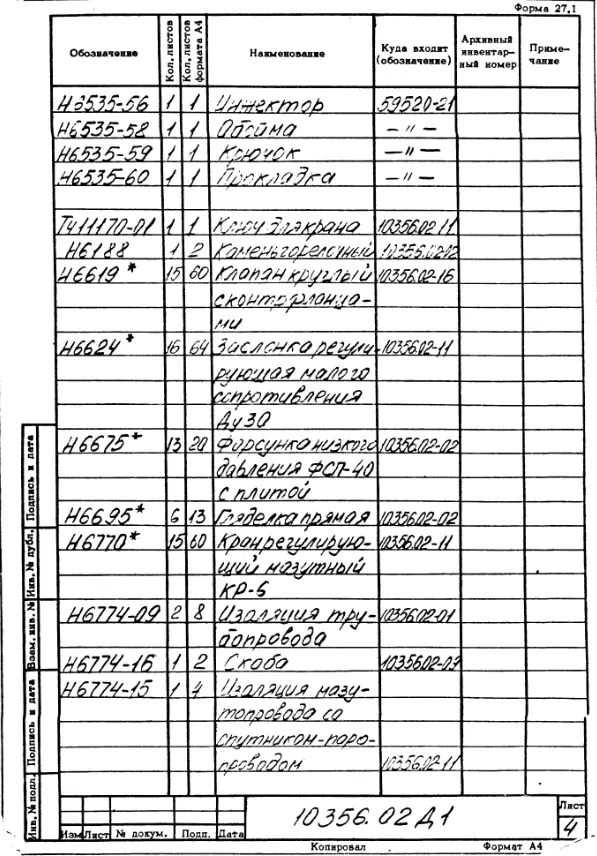 Форма 27.1
Обозначение Кол. листов Кол. листов формата А4 Наименование Куда входит (обозначение) Архивный инвентарный номер Примечание
Н6535-56 1 1 Инжектор 59520-21
Н6535-58 1 1 Обойма — " —
Н6535-59 1 1 Крючок — " —
Н6535-60 1 1 Прокладка — " —
ТЧ11170-01 1 1 Ключ для крана 10356.02-11
Н6188 1 2 Камень горелочный 10356.02-02
Н6619 * 15 60 Клапан круглый 10356.02-16
с контрфланца-
ми
Н6624 * 16 64 Заслонка регули- 10356.02-11
рующая малого
сопротивления
Ду 30
Н6675 * 13 20 Форсунка низкого 10356.02-02
давления ФСП-40
с плитой
Н6695 * 6 13 Гляделка прямая 10356.02-02
Н6770 * 15 60 Кран регулирую- 10356.02-11
щий мазутный
КР-6
Н6774-09 2 8 Изоляция тру- 10356.02-01
бопровода
Н6774-16 1 2 Скоба 10356.02-09
Н6774-15 1 4 Изоляция мазу-
топровода со
спутником-паро-
проводом 10356.02-11
Подпись и дата
Инв. № дубл.
Взам. инв. №
Подпись и дата
Инв. № подл.
10356.02Д1
Лист
4
Изм Лист № докум. Подп. Дата
Копировал Формат А4